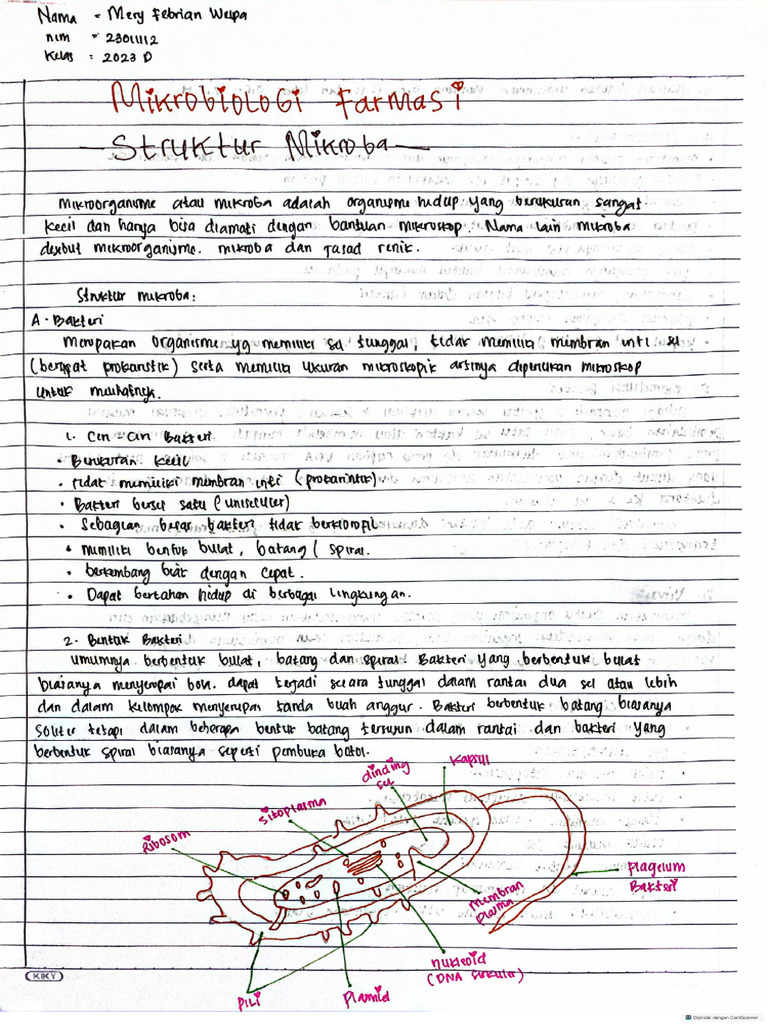 Nama = Mery Febrian Welpa
nim = 23011112
Kelas : 2023 D
Mikrobiologi Farmasi
Struktur Mikroba
Mikroorganisme atau mikroba adalah organisme hidup yang berukuran sangat
kecil dan hanya bisa diamati dengan bantuan mikroskop. Nama lain mikroba
disebut mikroorganisme. mikroba dan jasad renik.
Struktur mikroba:
A. Bakteri
Merupakan organisme yg memiliki sel tunggal, tidak memiliki membran inti sel
(bersifat prokariotik) serta memiliki ukuran mikroskopik artinya diperlukan mikroskop
untuk melihatnya.
1. Ciri-Ciri Bakteri
• Berukuran kecil
• tidak memiliki membran inti (prokariotik)
• Bakteri bersel satu (uniseluler)
• Sebagian besar bakteri tidak berklorofil
• memiliki bentuk bulat, batang ( spiral.
• berkembang biak dengan cepat.
• Dapat bertahan hidup di berbagai lingkungan.
2. Bentuk Bakteri
umumnya berbentuk bulat, batang dan spiral. Bakteri yang berbentuk bulat
biasanya menyerupai bola. dapat terjadi secara tunggal dalam rantai dua sel atau lebih
dan dalam kelompok menyerupai tanda buah anggur. Bakteri berbentuk batang biasanya
soliter tetapi dalam beberapa bentuk batang tersusun dalam rantai dan bakteri yang
berbentuk spiral biasanya seperti pembuka botol.
Kapsul
dinding
sel
sitoplasma
Ribosom
Flagelum
Bakteri
membran
plasma
nukleoid
(DNA sirkuler)
Plasmid
Pili
KIKY
Dipindai dengan CamScanner